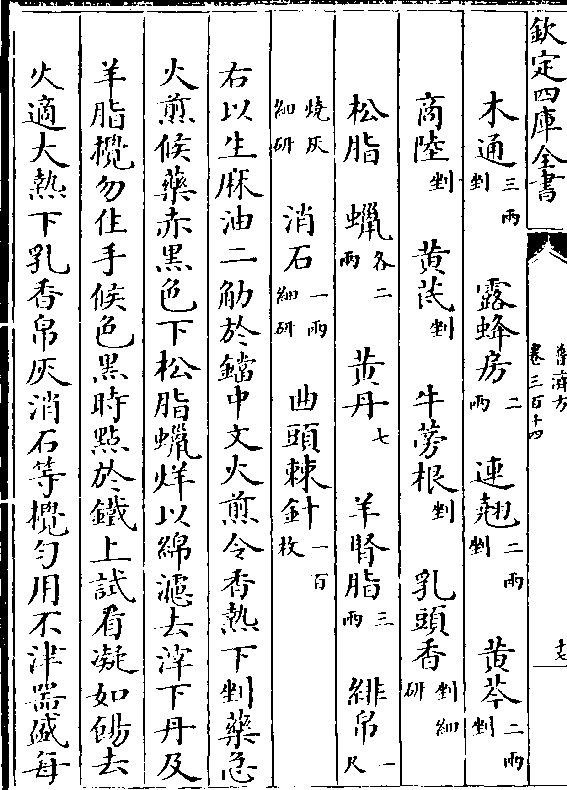 欽定四庫全書
普濟方
卷三百十四
十七
木通三兩剉 露蜂房二兩 連翹二兩剉 黄芩二兩剉
商陸剉 黄芪剉 牛蒡根剉 乳頭香剉細研
松脂 蠟各二兩 黄丹七 羊腎脂三兩 緋帛一尺
燒灰細研 消石一兩細研 曲頭棘針一百枚
右以生麻油二觔於鐺中文火煎令香熟下剉藥急
火煎候藥赤黒色下松脂蠟烊以綿濾去滓下丹及
羊脂攪勿住手候色黒時㸃於鐵上試看凝如餳去
火適大熱下乳香帛灰消石等攪勻用不津器盛每